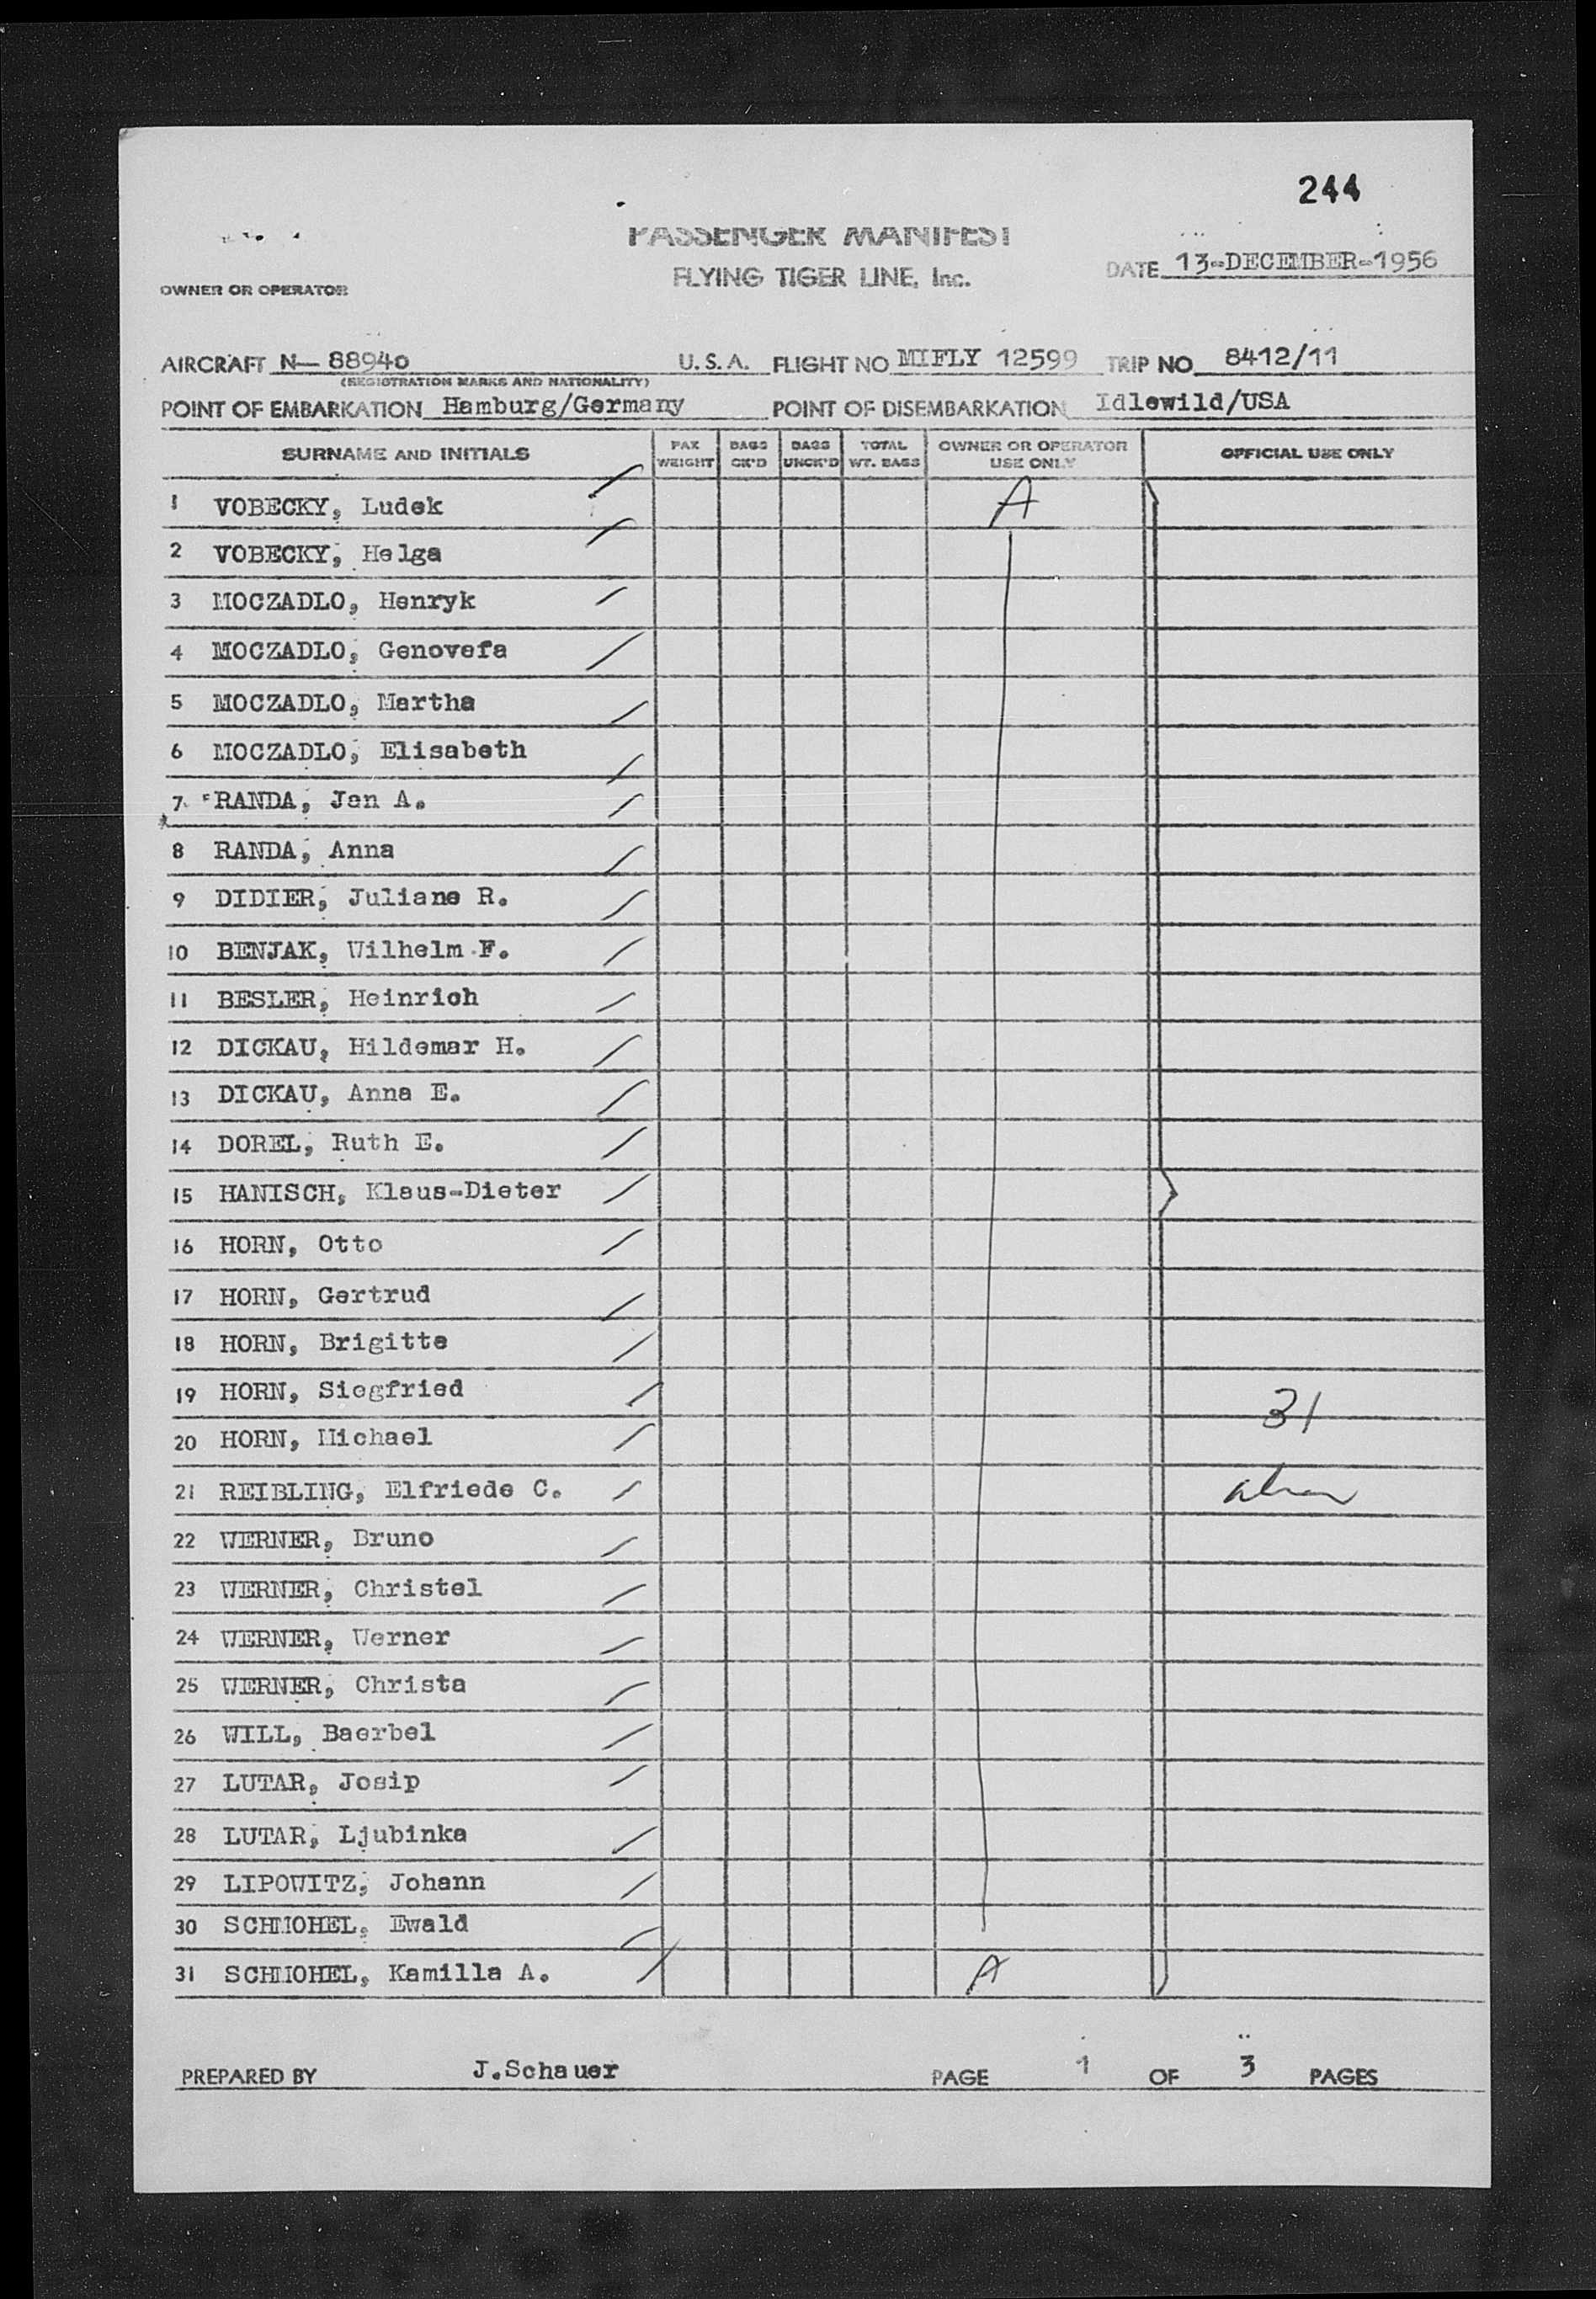 244
PASSENGER MANIFEST
FLYING TIGER LINE, Inc.
DATE 13-DECEMBER-1956
OWNER OR OPERATOR
AIRCRAFT N- 88940 U.S.A. FLIGHT NO MIFLY 12599 TRIP NO 8412/11
(REGISTRATION MARKS AND NATIONALITY)
POINT OF EMBARKATION Hamburg/Germany POINT OF DISEMBARKATION Idlewild/USA
SURNAME AND INITIALS PAX WEIGHT BAGS CK'D BAGS UNCK'D TOTAL WT. BAGS OWNER OR OPERATOR USE ONLY OFFICIAL USE ONLY
1 VOBECKY, Ludek A
2 VOBECKY, Helga
3 MOCZADLO, Henryk
4 MOCZADLO, Genovefa
5 MOCZADLO, Martha
6 MOCZADLO, Elisabeth
7 RANDA, Jan A.
8 RANDA, Anna
9 DIDIER, Juliane R.
10 BENJAK, Wilhelm F.
11 BESLER, Heinrich
12 DICKAU, Hildemar H.
13 DICKAU, Anna E.
14 DOREL, Ruth E.
15 HANISCH, Klaus-Dieter
16 HORN, Otto
17 HORN, Gertrud
18 HORN, Brigitte
19 HORN, Siegfried 31
20 HORN, Michael
21 REIBLING, Elfriede C.
22 WERNER, Bruno
23 WERNER, Christel
24 WERNER, Werner
25 WERNER, Christa
26 WILL, Baerbel
27 LUTAR, Josip
28 LUTAR, Ljubinka
29 LIPOWITZ, Johann
30 SCHMOHEL, Ewald
31 SCHMOHEL, Kamilla A. A
PREPARED BY J.Schauer PAGE 1 OF 3 PAGES